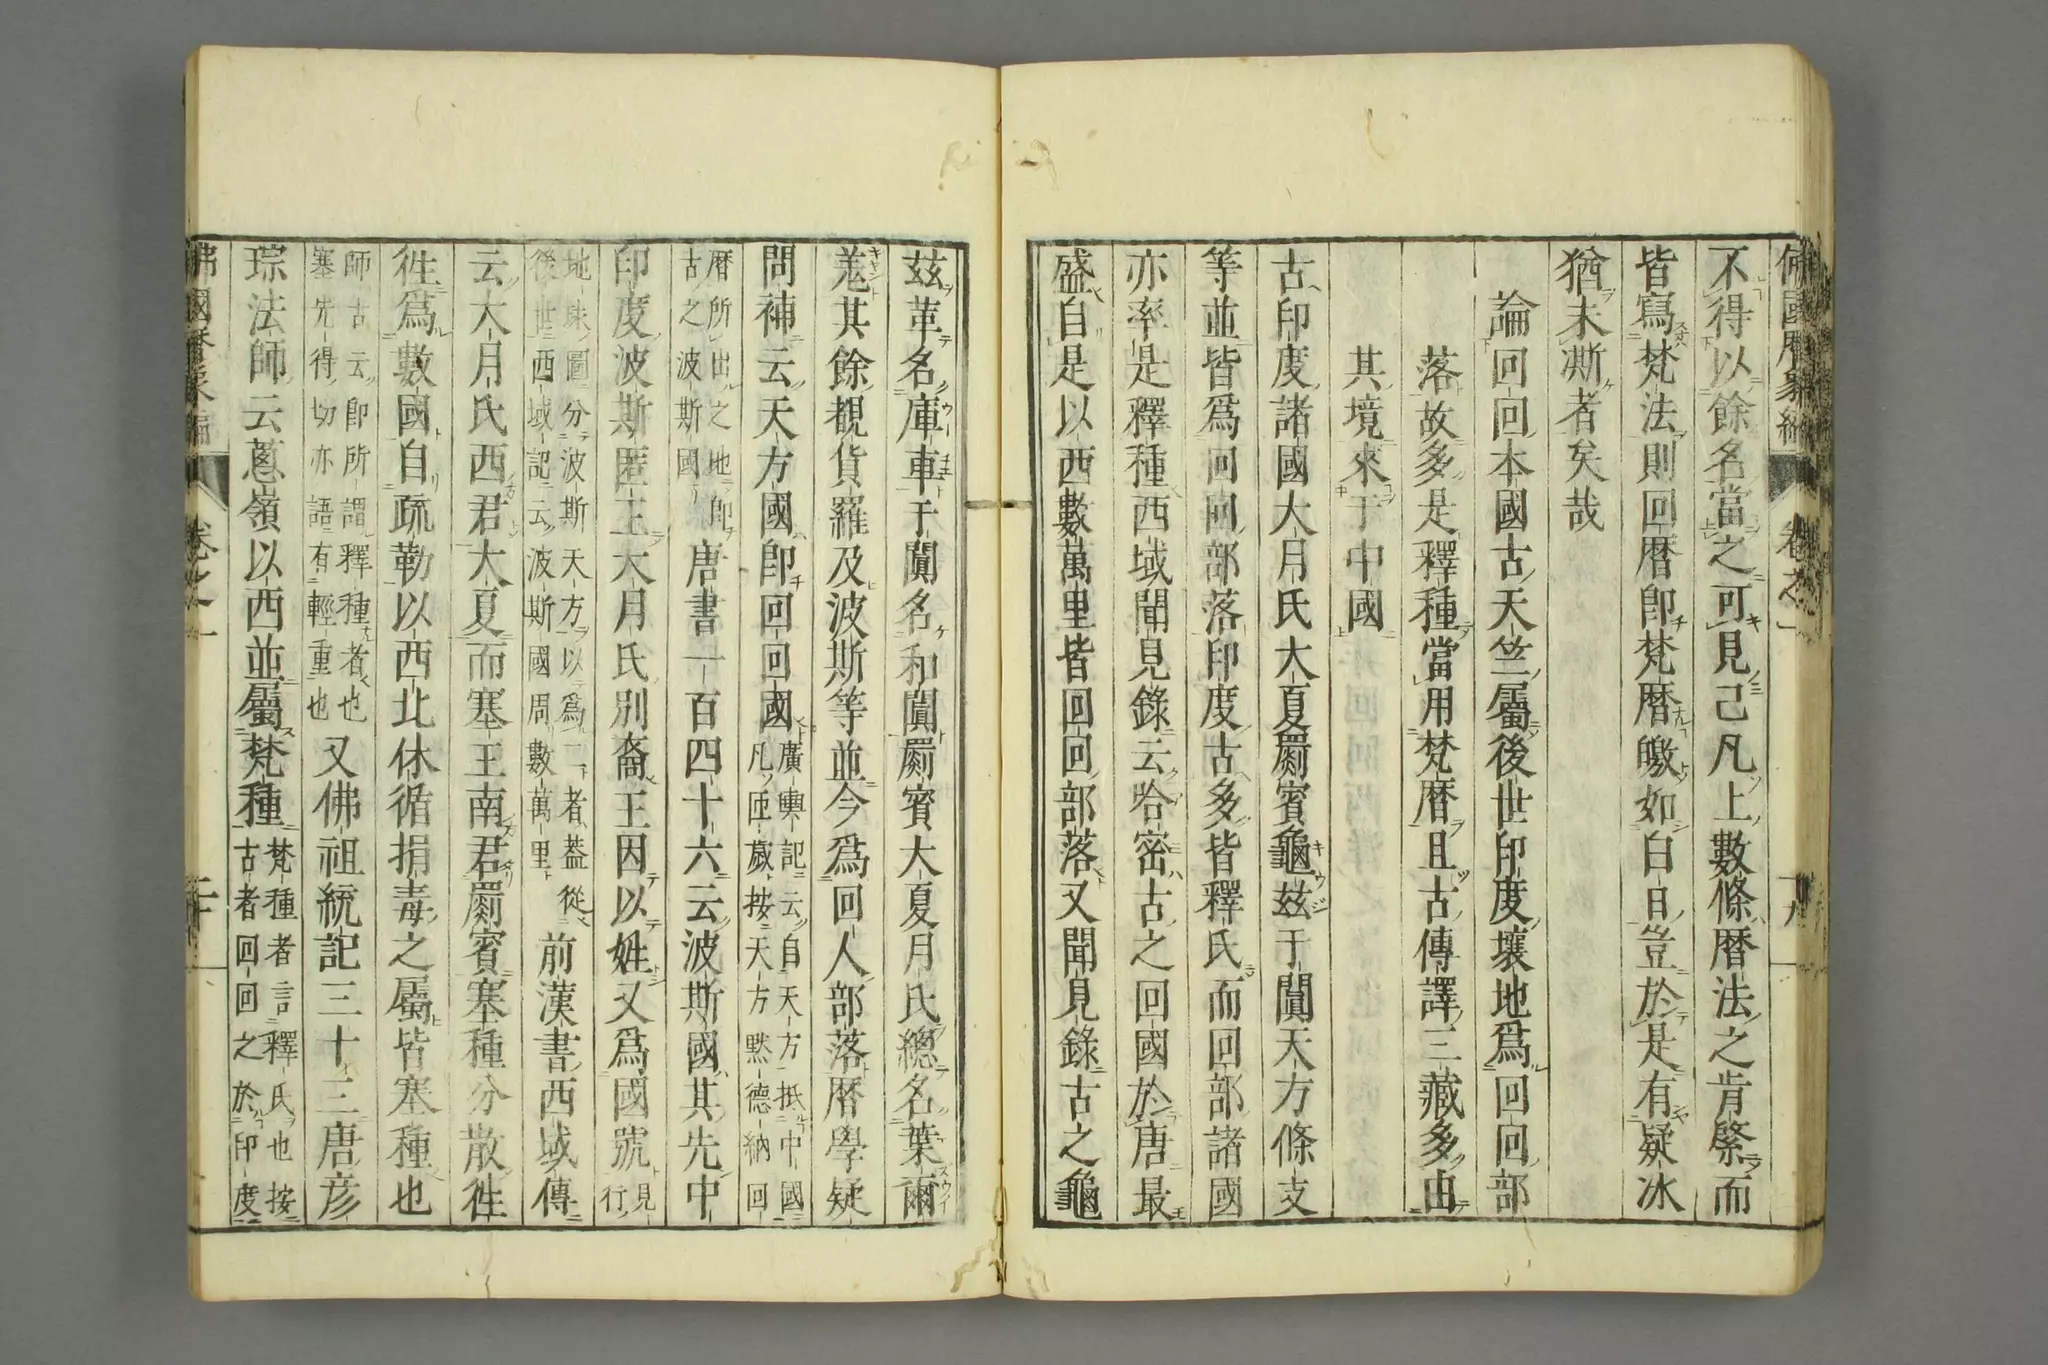 佛國暦象編 卷之一 十九
不得以餘名當之可見己凡上數條暦法之肯綮而
皆寫梵法則回暦即梵暦皦如白日豈於是有疑冰
猶未澌者矣哉
論回回本國古天竺屬後世印度壤地爲回回部
落故多是釋種當用梵暦且古傳譯三藏多由
其境來于中國
古印度諸國大月氏大夏罽賓龜茲于闐天方條支
等並皆爲回回部落印度古多皆釋氏而回部諸國
亦率是釋種西域聞見錄云哈密古之回國於唐最
盛自是以西數萬里皆回回部落又聞見錄古之龜
茲革名庫車于闐名和闐罽賓大夏月氏總名葉爾
羗其餘覩貨羅及波斯等並今爲回人部落暦學疑
問補云天方國即回回國廣輿記云自天方抵中國
凡匝歳按天方默德納回
暦所出之地即
古之波斯國唐書一百四十六云波斯國其先中
印度波斯匿王大月氏別裔王因以姓又爲國號見
行
地球圖分波斯天方以爲二者蓋從
後世西域記云波斯國周數萬里前漢書西域傳
云大月氏西君大夏而塞王南君罽賓塞種分散徃
徃爲數國自疏勒以西北休循捐毒之屬皆塞種也
師古云即所謂釋種者也
塞先得切亦語有輕重也又佛祖統記三十三唐彦
琮法師云蔥嶺以西並屬梵種梵種者言釋氏也按
古者回回之於印度
佛國暦象編 卷之一 二十